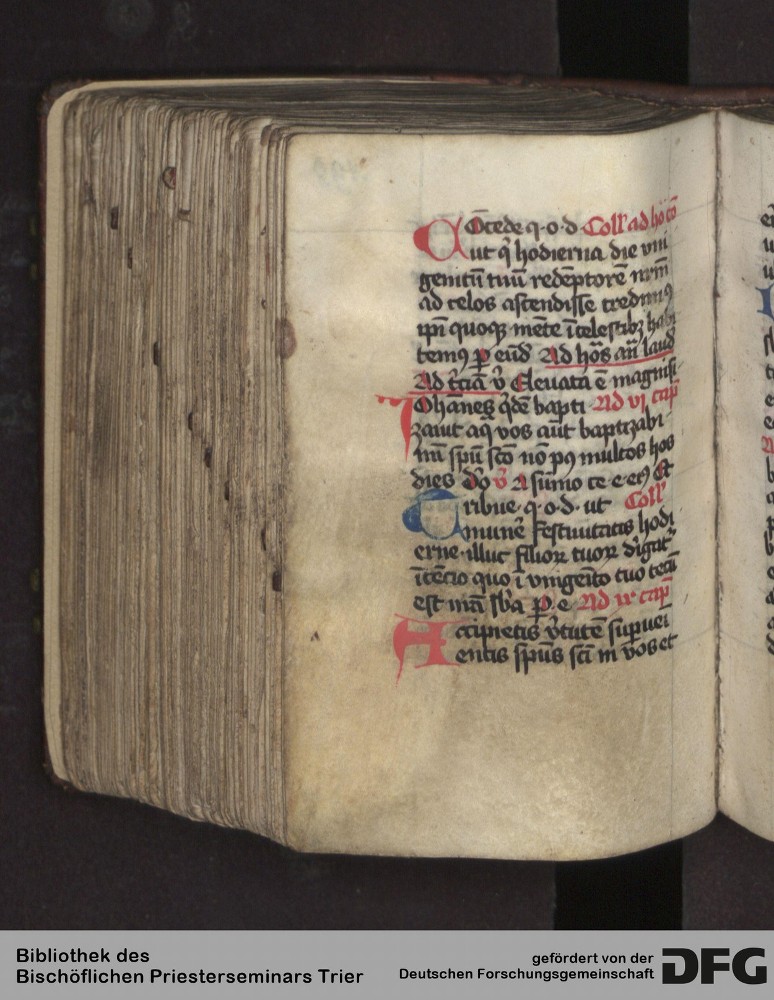 Cōcede q·o·d· Coll' ad hōs cō
ut q̄ hodierna die vni
genitū tuū redēptorē nr̄m
ad celos ascendisse credimꝰ
ipī quoqꝫ mēte ī celestibꝫ habi
temꝰ p eūd Ad hōs añ laud
Ad t̄ciā v̄ Eleuata ē magnifi
Johānes q̄dē bapti Ad vi cap̄
zauit aq̄ vos aūt baptizabi
mī spū sc̄o nō pꝰ multos hos
dies D̄o v̄ Asūmo ce e·erꝰ Et
Tribue q·o·d· ut Coll'
munē festiuitatis hodi
erne illuc filioꝝ tuoꝝ d'igat̄
ītēcio quo ī vnigēito tuo tecū
est nr̄a sb'a P e Ad ix cap̄
Accipietis v̄tutē supuei
entis spūs sc̄i in vos et
Bibliothek des
Bischöflichen Priesterseminars Trier
gefördert von der
Deutschen Forschungsgemeinschaft
DFG